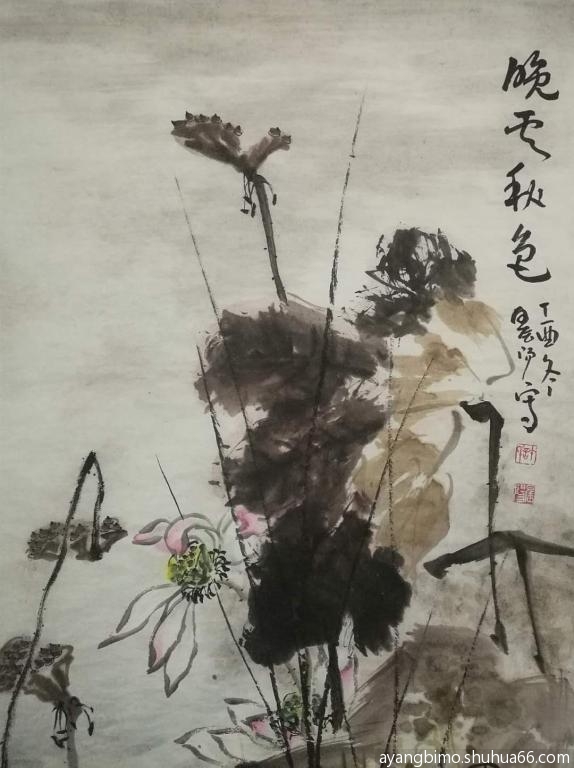 晚云秋色
丁酉冬
写
ayangbimo.shuhua66.com